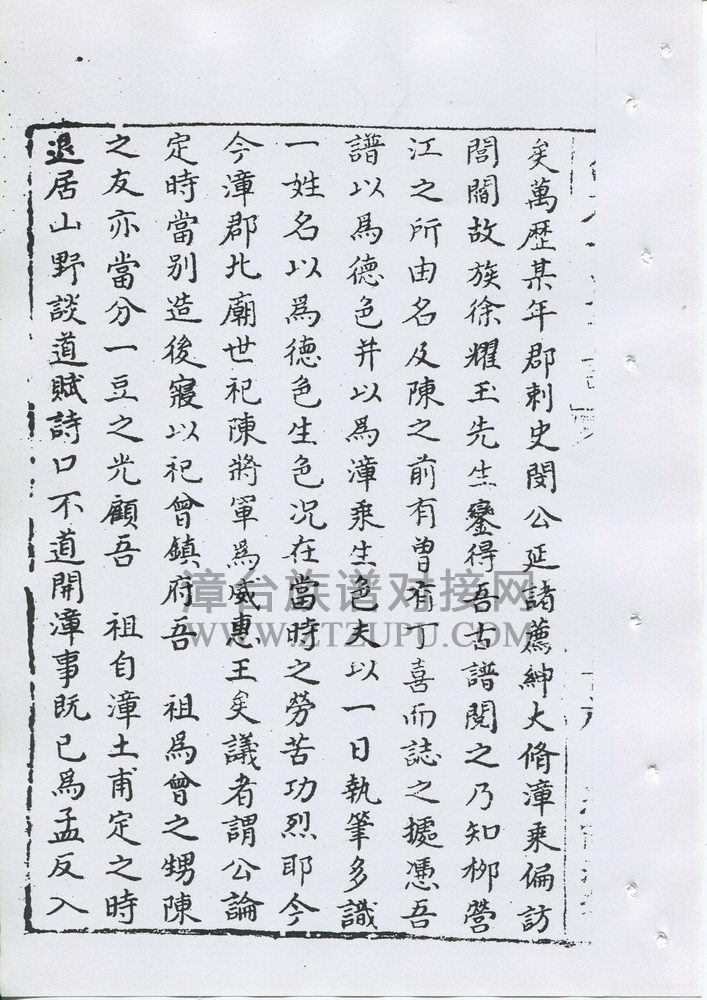 矣萬歷某年郡刺史閔公延諸薦紳大脩漳乘偏訪
閭閻故族徐耀玉先生鑾得吾古譜閱之乃知柳營
江之所由名及陳之前有曾有丁喜而誌之據憑吾
譜以為德色并以為漳乘生色夫以一日執筆多識
一姓名以為德色生色况在當時之勞苦功烈耶今
今漳郡北廟世祀陳將軍為威惠王矣議者謂公論
定時當別造後寢以祀曾鎮府吾 祖為曾之甥陳
之友亦當分一豆之光顧吾 祖自漳土甫定之時
退居山野談道賦詩口不道開漳事既已為孟反入
漳台族谱对接网
WWW.ZTZUPU.COM